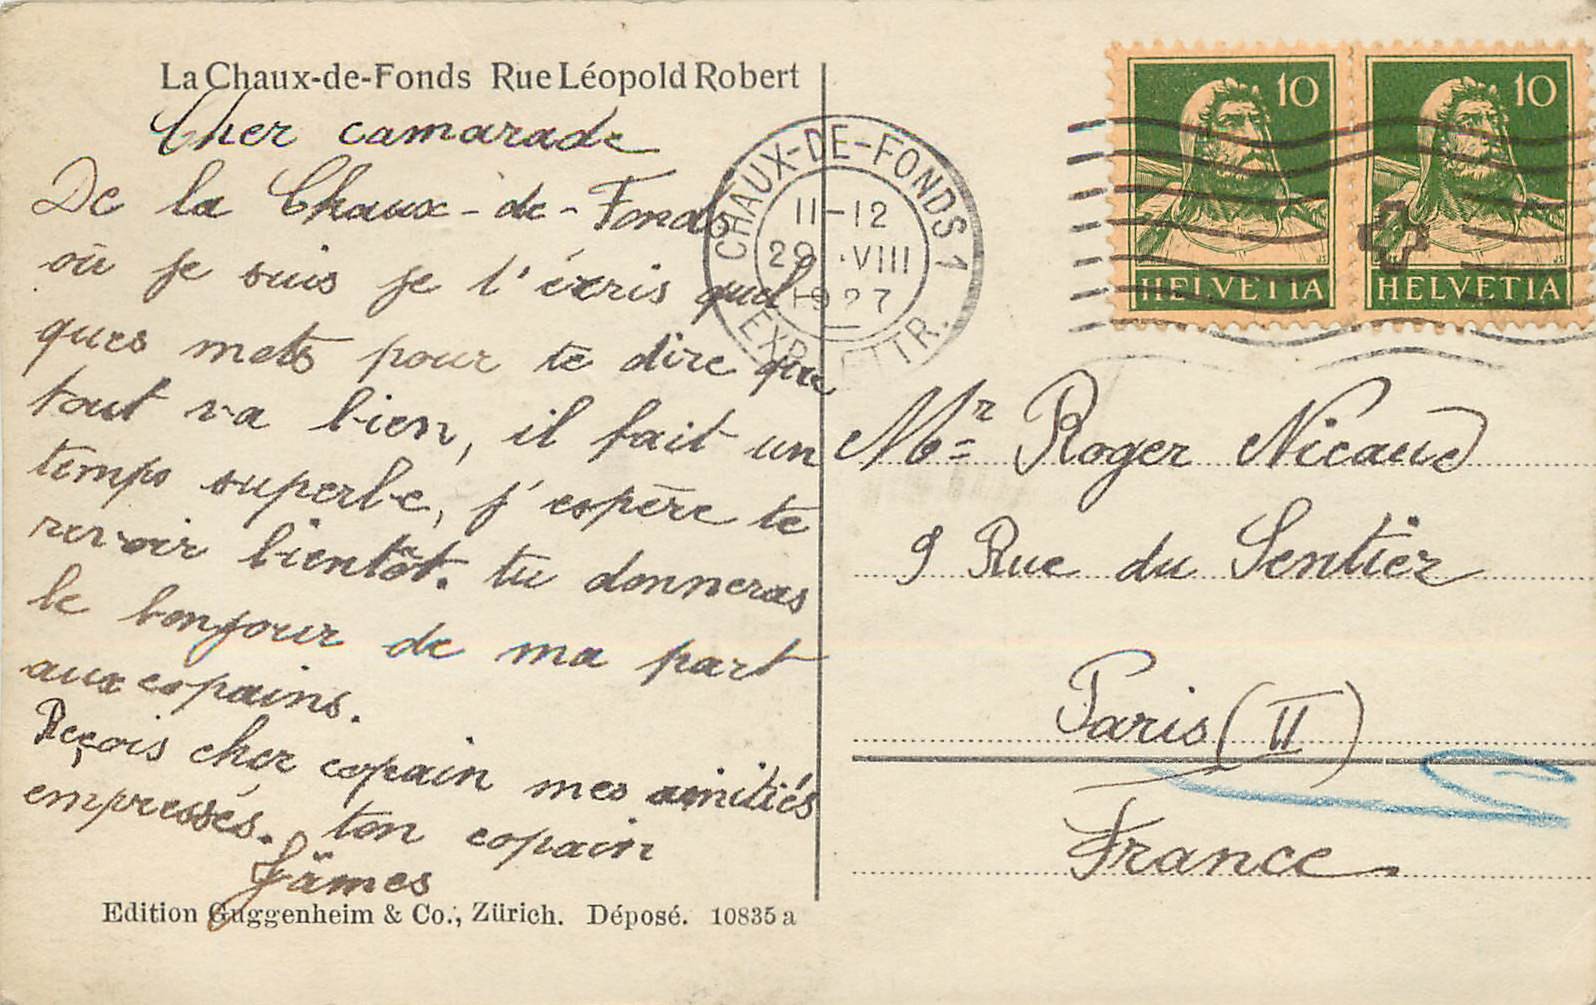 La Chaux-de-Fonds Rue Léopold Robert
Cher camarade
De la Chaux-de-Fonds
où je suis je t'écris quel
ques mots pour te dire que
tout va bien, il fait un
temps superbe, j'espère te
revoir bientôt. tu donneras
le bonjour de ma part
aux copains.
Reçois cher copain mes amitiés
empressés. ton copain
Jämes
Edition Guggenheim & Co., Zürich. Déposé. 10835 a
CHAUX-DE-FONDS 1
11-12
29.VIII
1927
EXP. LETTR.
10
HELVETIA
10
HELVETIA
Mr Roger Nicaud
9 Rue du Sentier
Paris (II)
France